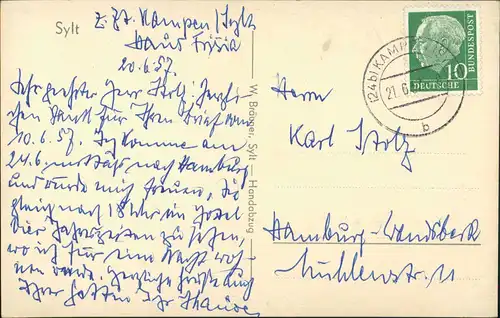 Sylt
z. Zt. Kampen / Sylt
Haus Frisia
20.6.57.
Sehr geehrter Herr Stolz! Herzli-
chen Dank für Ihren Brief vom
10.6.57. Ich komme am
24.6. mittags nach Hamburg
und würde mich freuen, Sie
gleich nach 18 Uhr im Hotel
Vier Jahreszeiten zu sehen,
wo ich für eine Nacht woh-
nen werde. Herzliche Grüße auch
Ihrer Gattin Ihr
W. Bröger, Sylt — Handabzug
(24b) KAMPEN
21.6.
b
10
DEUTSCHE
BUNDESPOST
Herrn
Karl Stolz
Hamburg-Wandsbek
Mühlenstr. 11